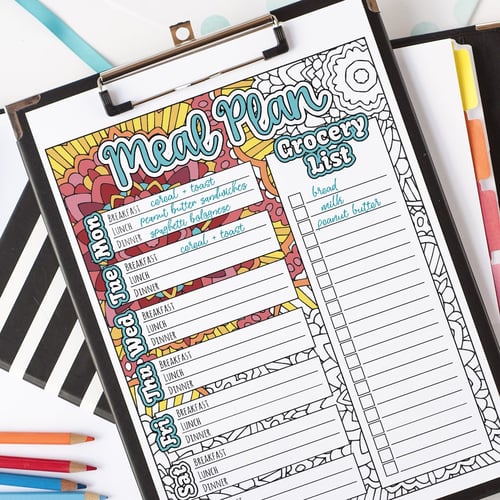 Meal Plan
Mon
BREAKFAST cereal + toast
LUNCH peanut butter sandwiches
DINNER spaghetti bolognese
Tue
BREAKFAST cereal + toast
LUNCH
DINNER
Wed
BREAKFAST
LUNCH
DINNER
Thu
BREAKFAST
LUNCH
DINNER
Fri
BREAKFAST
LUNCH
DINNER
Sat
BREAKFAST
LUNCH
DINNER
Grocery
List
bread
milk
peanut butter